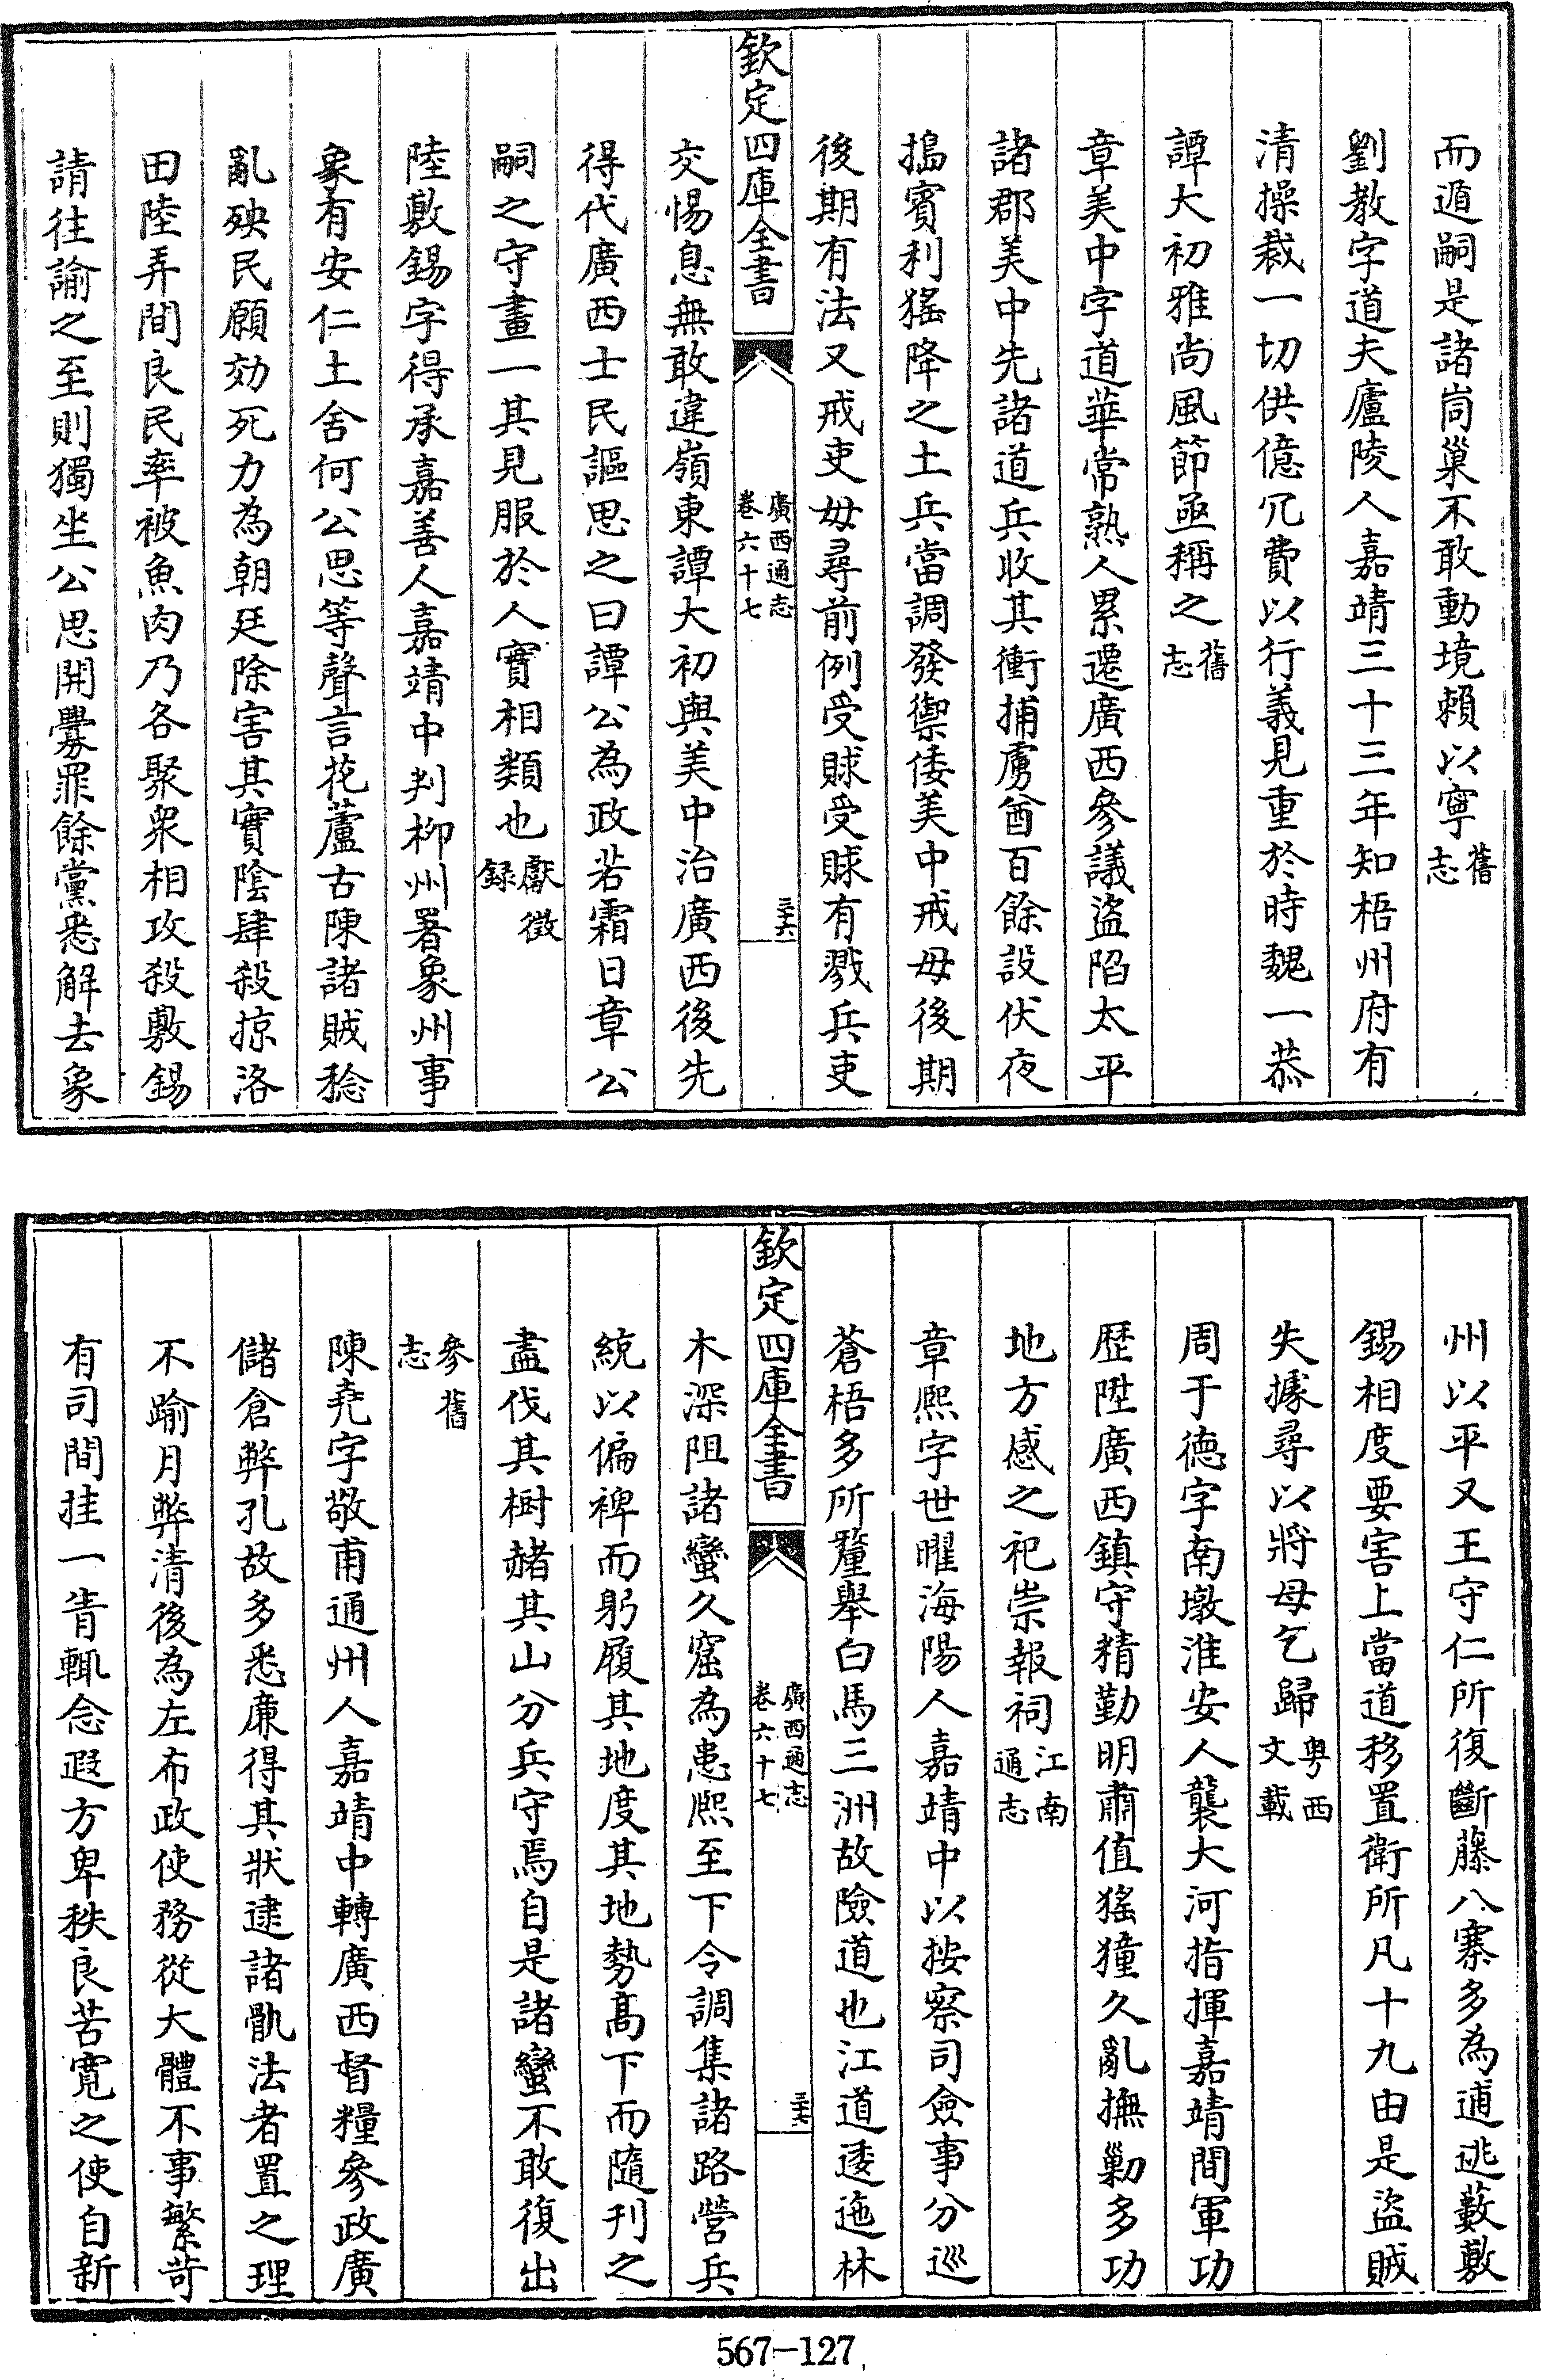 而遁嗣是諸峝巢不敢動境賴以寧舊志
劉教字道夫廬陵人嘉靖三十三年知梧州府有
清操裁一切供億冗費以行義見重於時魏一恭
譚大初雅尚風節亟稱之舊志
章美中字道華常熟人累遷廣西參議盜陷太平
諸郡美中先諸道兵收其衝捕虜酋百餘設伏夜
搗賓利猺降之土兵當調發禦倭美中戒毋後期
後期有法又戒吏毋尋前例受賕受賕有戮兵吏
欽定四庫全書
廣西通志
卷六十七
三十六
交惕息無敢違嶺東譚大初與美中治廣西後先
得代廣西士民謳思之曰譚公為政若霜日章公
嗣之守畫一其見服於人實相類也獻徵錄
陸敷錫字得承嘉善人嘉靖中判柳州署象州事
象有安仁土舍何公思等聲言花蘆古陳諸賊稔
亂殃民願効死力為朝廷除害其實陰肆殺掠洛
田陸弄間良民率被魚肉乃各聚眾相攻殺敷錫
請往諭之至則獨坐公思開釁罪餘黨悉解去象
州以平又王守仁所復斷藤八寨多為逋逃藪敷
錫相度要害上當道移置衛所凡十九由是盜賊
失據尋以將母乞歸粵西文載
周于德字南墩淮安人襲大河指揮嘉靖間軍功
歴陞廣西鎮守精勤明肅值猺獞久亂撫勦多功
地方感之祀崇報祠江南通志
章熙字世曜海陽人嘉靖中以按察司僉事分巡
蒼梧多所釐舉白馬三洲故險道也江道逶迤林
欽定四庫全書
廣西通志
卷六十七
三十七
木深阻諸蠻久窟為患熙至下令調集諸路營兵
統以偏裨而躬履其地度其地勢高下而隨刋之
盡伐其樹赭其山分兵守焉自是諸蠻不敢復出
參舊志
陳堯字敬甫通州人嘉靖中轉廣西督糧參政廣
儲倉弊孔故多悉廉得其狀逮諸骫法者置之理
不踰月弊清後為左布政使務從大體不事繁苛
有司間挂一眚輒念遐方卑秩良苦寬之使自新
567-127